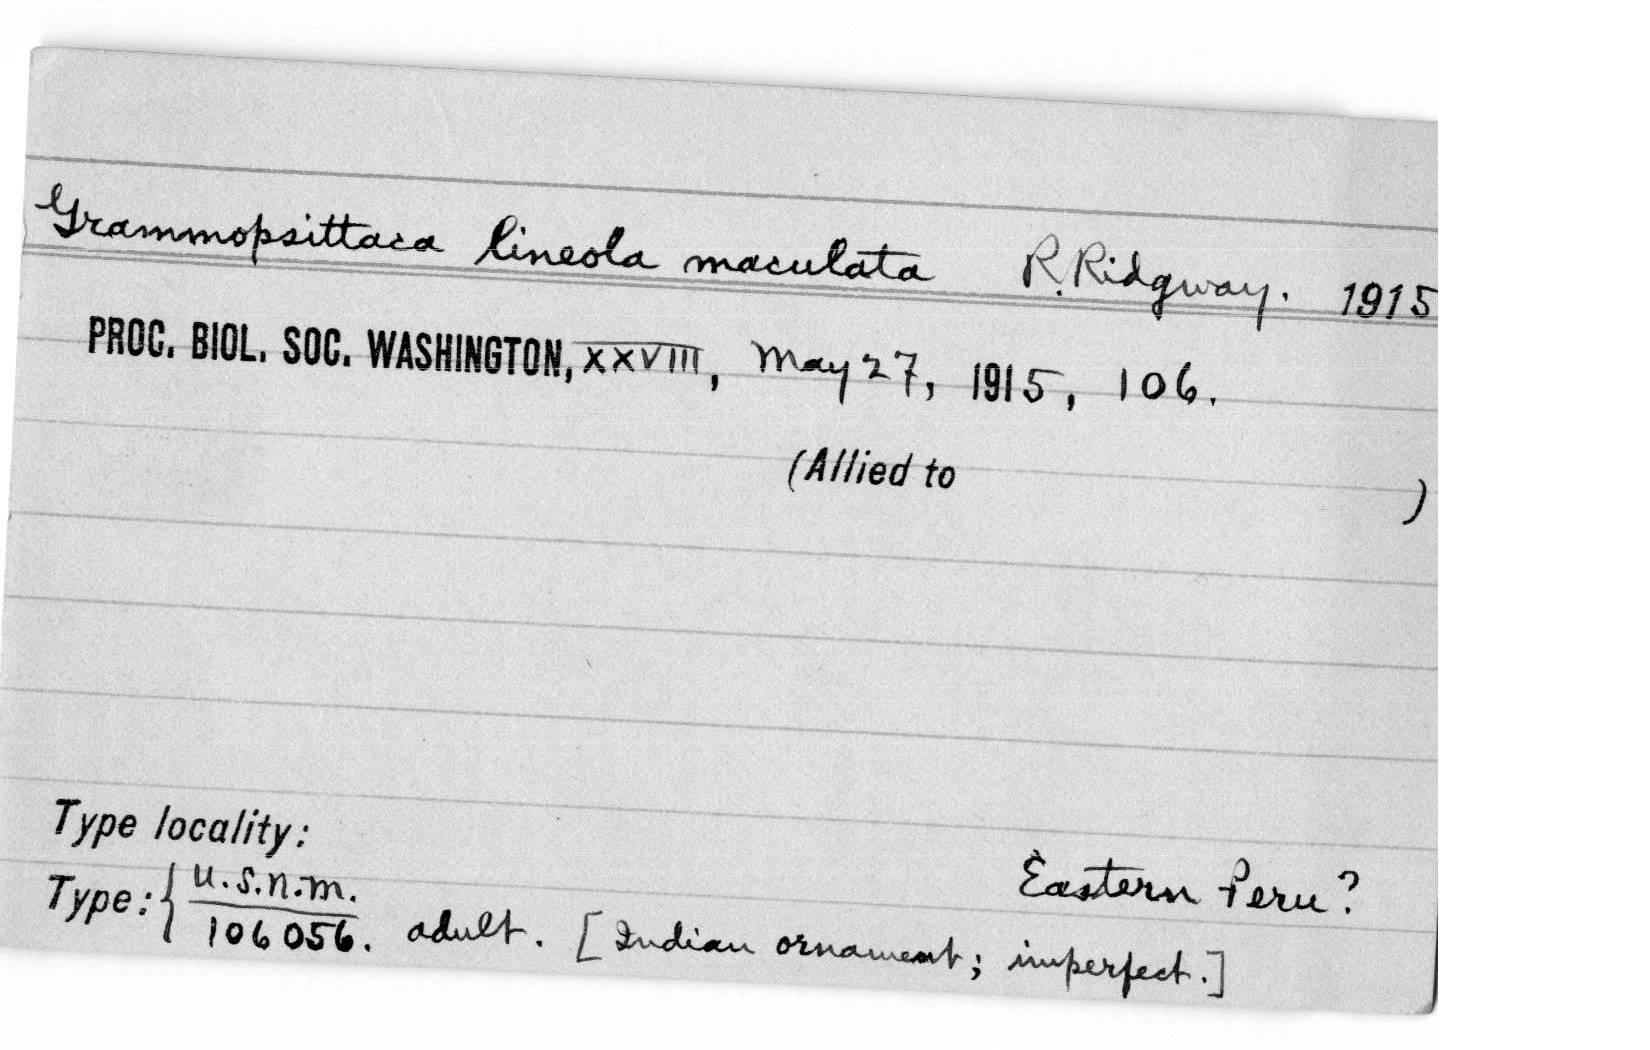 Grammopsittaca lineola maculata R. Ridgway. 1915
PROC. BIOL. SOC. WASHINGTON, XXVIII, May 27, 1915, 106.
(Allied to )
Type locality:
Eastern Peru?
Type: { U.S.N.M. / 106056. adult. [Indian ornament; imperfect.]